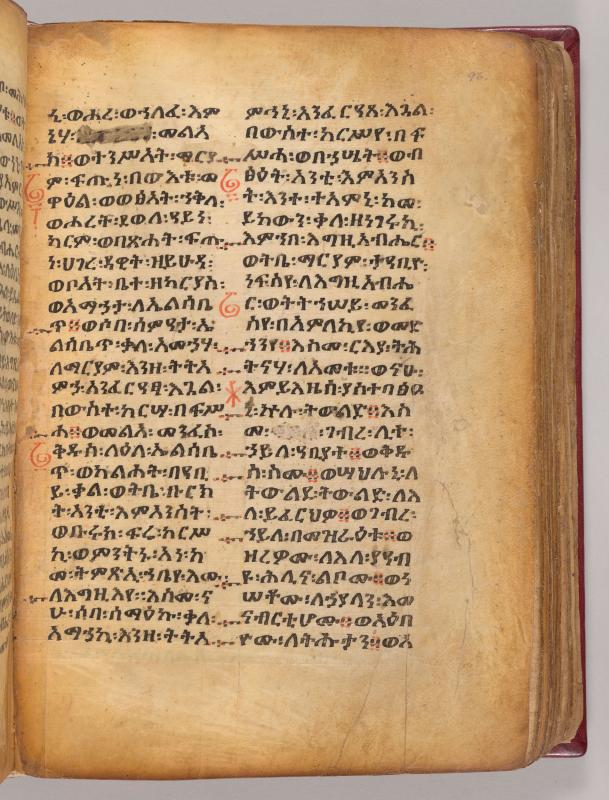 ዲ፡ወሐረ፡ወኀለፈ፡እም
ኔሃ፡መልአ
ክ።ወተንሥአት፡ማርያ
ም፡ፍጡነ፡በውእቱ፡መ
ዋዕል፡ወወፅአት፡ኀቅለ፡
ወሐረት፡ደወለ፡ዳይን፡
ከርም፡ወበጽሐት፡ፍጡ
ነ፡ሀገረ፡ዳዊት፡ዘይሁዳ፡
ወቦአት፡ቤተ፡ዘካርያስ፡
ወአማኅታ፡ለኤልሳቤ
ጥ።ወሶበ፡ሰምዓታ፡ኤ
ልሳቤጥ፡ቃለ፡አመኃሃ፡
ለማርያም፡እንዘ፡ትትአ
ምኃ፡አንፈርዓፀ፡እጓል፡
በውስተ፡ከርሣ፡በፍሥ
ሐ።ወመልአ፡መንፈስ፡
ቅዱስ፡ላዕለ፡ኤልሳቤ
ጥ፡ወከልሐት፡በዓቢ
ይ፡ቃል፡ወትቤ፡ቡርክ
ት፡አንቲ፡እምአንስት፡
ወቡሩክ፡ፍሬ፡ከርሥ
ኪ፡ወምንትኑ፡አነ፡ከ
መ፡ትምጽኢ፡ኀቤየ፡እሙ
ለእግዚእየ።እስመ፡ና
ሁ፡ሶበ፡ሰማዕኩ፡ቃለ፡
አማኅኪ፡እንዘ፡ትትአ
ምኅኒ፡አንፈርዓጸ፡እጓል፡
በውስተ፡ከርሥየ፡በፍ
ሥሐ፡ወበኀሤት።ወብ
ፅዕት፡አንቲ፡እምአንስ
ት፡እንተ፡ተአምኒ፡ከመ፡
ይከውን፡ቃለ፡ዘነገሩኪ፡
እምኀበ፡እግዚአብሔር።
ወትቤ፡ማርያም፡ታዓብዮ፡
ነፍስየ፡ለእግዚአብሔ
ር፡ወትትኀሠይ፡መንፈ
ስየ፡በአምላኪየ፡ወመድ
ኀንየ።እስመ፡ርእያ፡ትሕ
ትናሃ፡ለአመቱ።ወናሁ፡
እምይእዜሰ፡ያስተባፅዑ
ኒ፡ኵሉ፡ትውልድ።እስ
መ፡ገብረ፡ሊተ፡
ኃይለ፡ዓቢያተ።ወቅዱ
ስ፡ስሙ።ወሣህሉኒ፡ለ
ትውልደ፡ትውልድ፡ለእ
ለ፡ይፈርህዎ።ወገብረ፡
ኀይለ፡በመዝራዕቱ።ወ
ዘረዎሙ፡ለእለ፡ያዓብ
ዩ፡ሕሊና፡ልቦሙ።ወነ
ሠቶሙ፡ለኃያላን፡እመ
ናብርቲሆሙ።ወአዕበ
ዮሙ፡ለትሑታን።ወአ